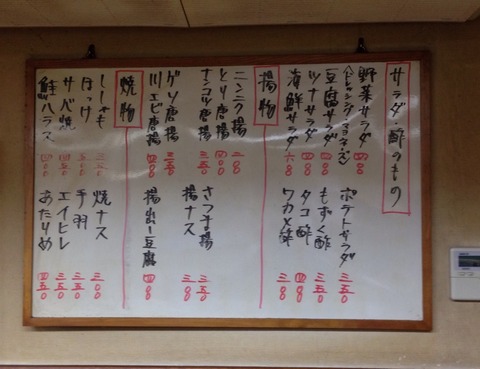 サラダ・酢のもの
野菜サラダ 四〇〇
(ドレッシング マヨネーズ)
豆腐サラダ 四〇〇
ツナサラダ 四〇〇
海鮮サラダ 六〇〇
ポテトサラダ 三五〇
もずく酢 三五〇
タコ酢 四〇〇
ワカメ酢 三〇〇
揚物
ニンニク揚 三〇〇
とり唐揚 四〇〇
ナンコツ唐揚 三五〇
ゲソ唐揚 三五〇
川エビ唐揚 四〇〇
さつま揚 三五〇
揚ナス 三〇〇
揚出し豆腐 四〇〇
焼物
ししゃも 三五〇
ほっけ 五〇〇
サバ焼 四五〇
鮭ハラス 四〇〇
焼ナス 三〇〇
手羽 三五〇
エイヒレ 三五〇
あたりめ 四五〇